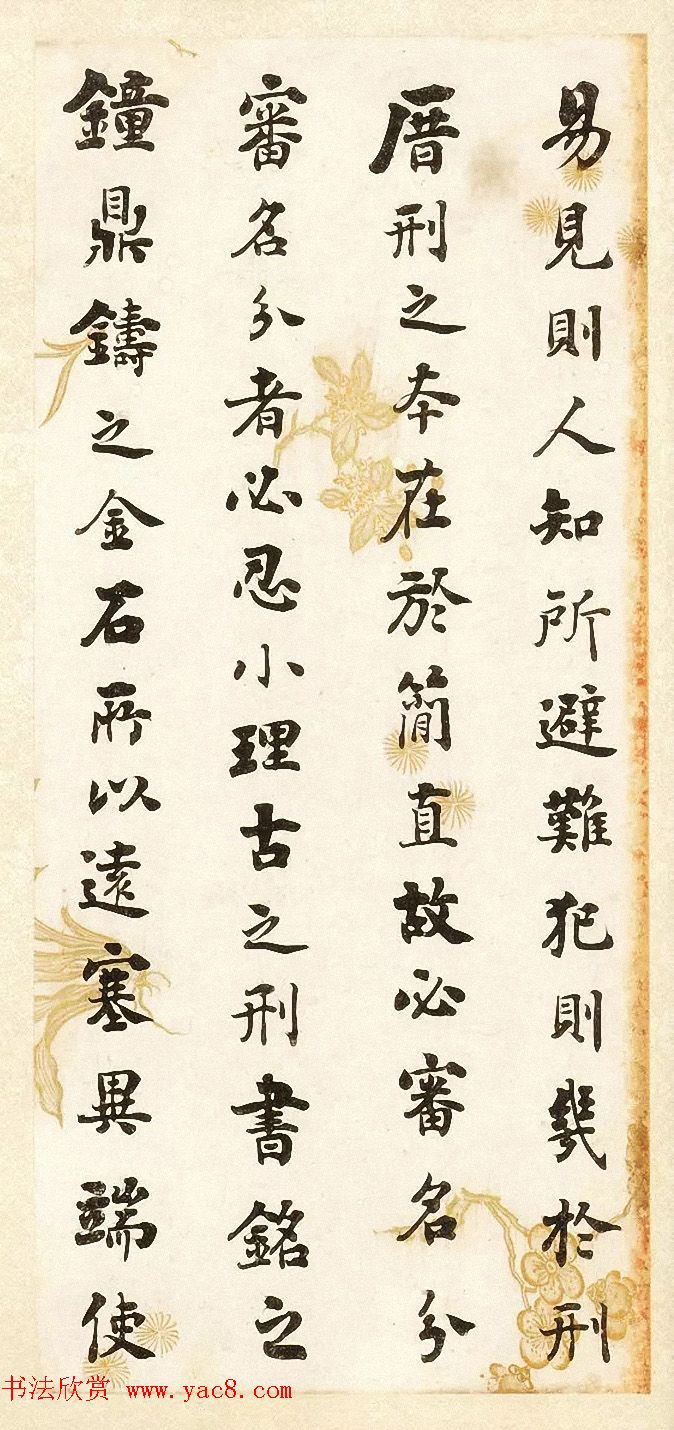 易見則人知所避難犯則幾於刑
厝刑之本在於簡直故必審名分
審名分者必忍小理古之刑書銘之
鐘鼎鑄之金石所以遠塞異端使
书法欣赏 www.yac8.com